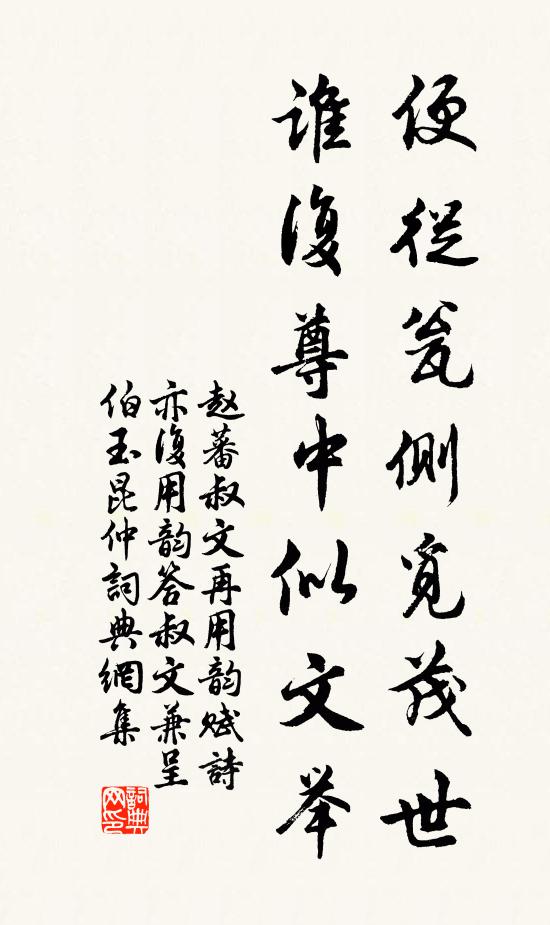 便從瓮側覓茂世
誰復尊中似文举
赵蕃叔文再用韵赋詩
亦復用韵答叔文兼呈
伯玉昆仲詞典網集
詞典網印